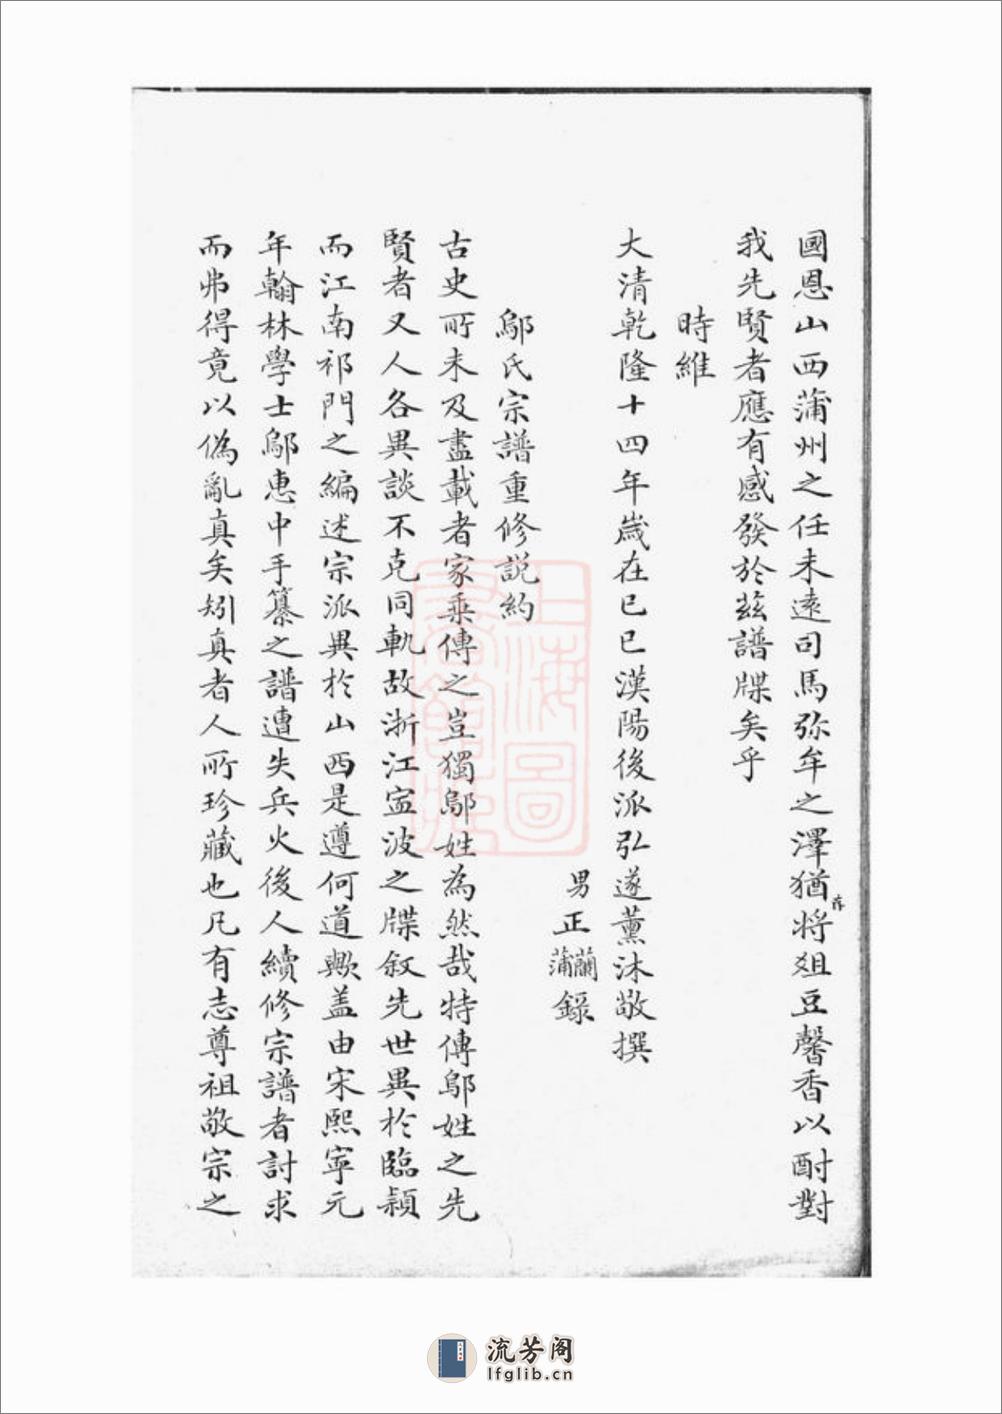 國恩山西蒲州之任未遠司馬弥牟之澤猶存將俎豆馨香以酧對
我先賢者應有感發於茲譜牒矣乎
時維
大清乾隆十四年嵗在已巳漢陽後派弘遂薰沐敬撰
男正蘭蒲錄
鄔氏宗譜重修説約
古史所未及盡載者家乗傳之豈獨鄔姓為然哉特傳鄔姓之先
賢者又人各異談不克同軌故浙江寍波之牒叙先世異於臨潁
而江南祁門之編述宗派異於山西是遵何道歟盖由宋熙寧元
年翰林學士鄔惠中手纂之譜遭失兵火後人續修宗譜者討求
而弗得竟以偽亂真矣矧真者人所珍藏也凡有志尊祖敬宗之
上海圖
書館藏
流芳阁
lfglib.cn